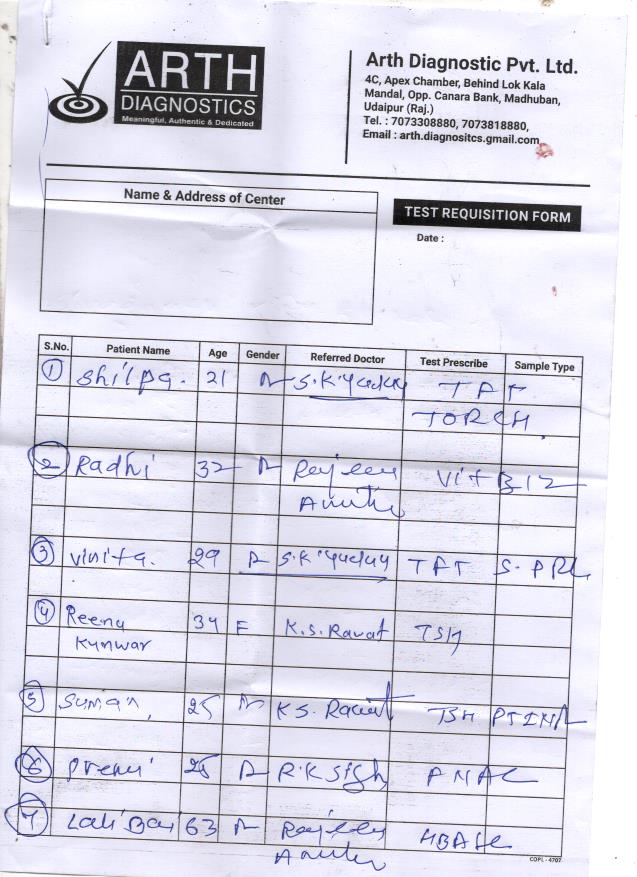 ARTH
DIAGNOSTICS
Meaningful, Authentic & Dedicated
Arth Diagnostic Pvt. Ltd.
4C, Apex Chamber, Behind Lok Kala
Mandal, Opp. Canara Bank, Madhuban,
Udaipur (Raj.)
Tel. : 7073308880, 7073818880,
Email : arth.diagnositcs.gmail.com
Name & Address of Center
TEST REQUISITION FORM
Date :
S.No. Patient Name Age Gender Referred Doctor Test Prescribe Sample Type
1 Shilpa. 21 S.K Yaduy TFT
TORCH
2 Radhi 32 Vit B12
3 Vinita. 29 S.K Yaduy TFT S. PRL
4 Reenu 34 F K.S. Rawat TSH
Kunwar
5 Suman 25 K S. Rawat TSH PTINR
6 Premi 25 R.K Sigh
7 Lali Bai 63
COPL - 4707